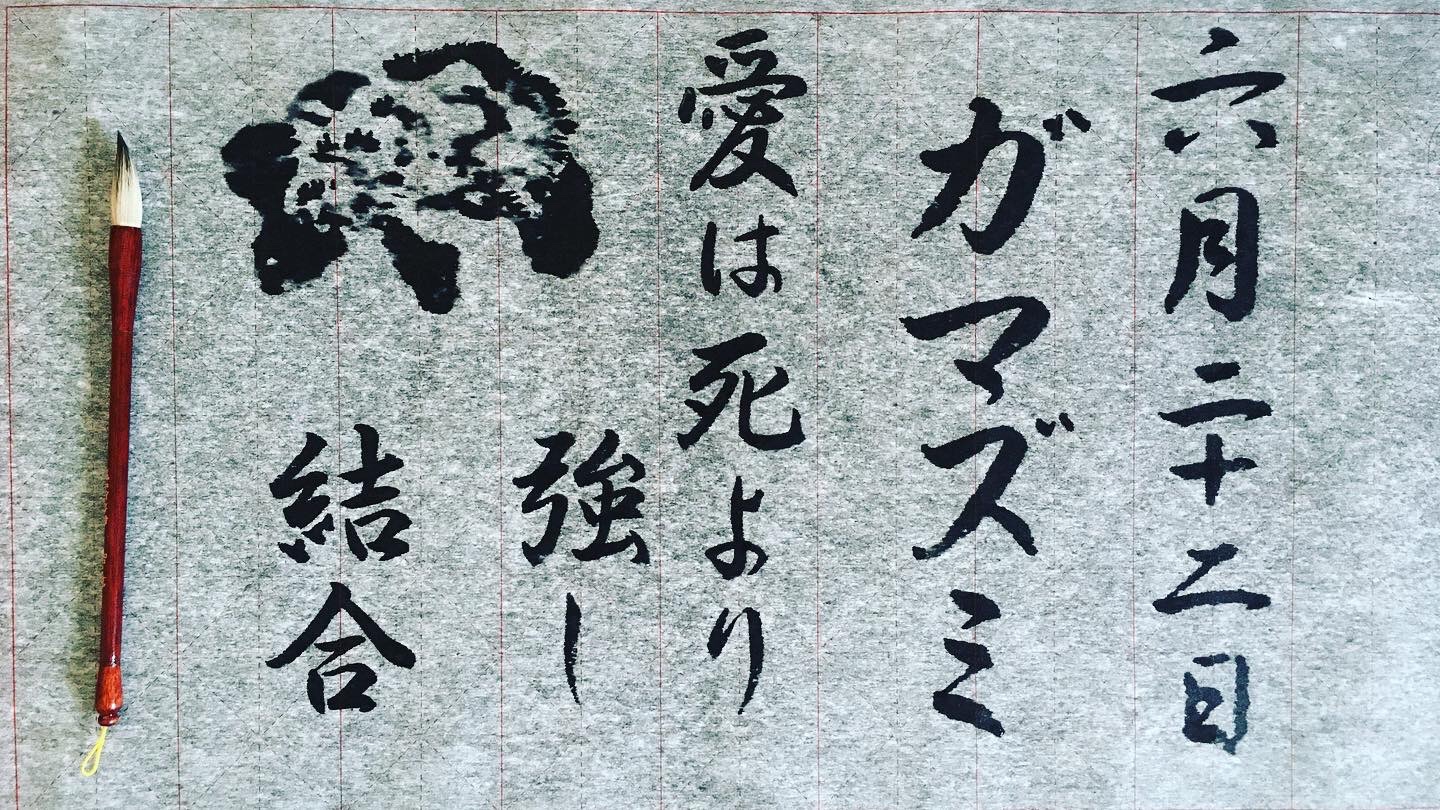 六月二十二日
ガマズミ
愛は死より
強し
結合